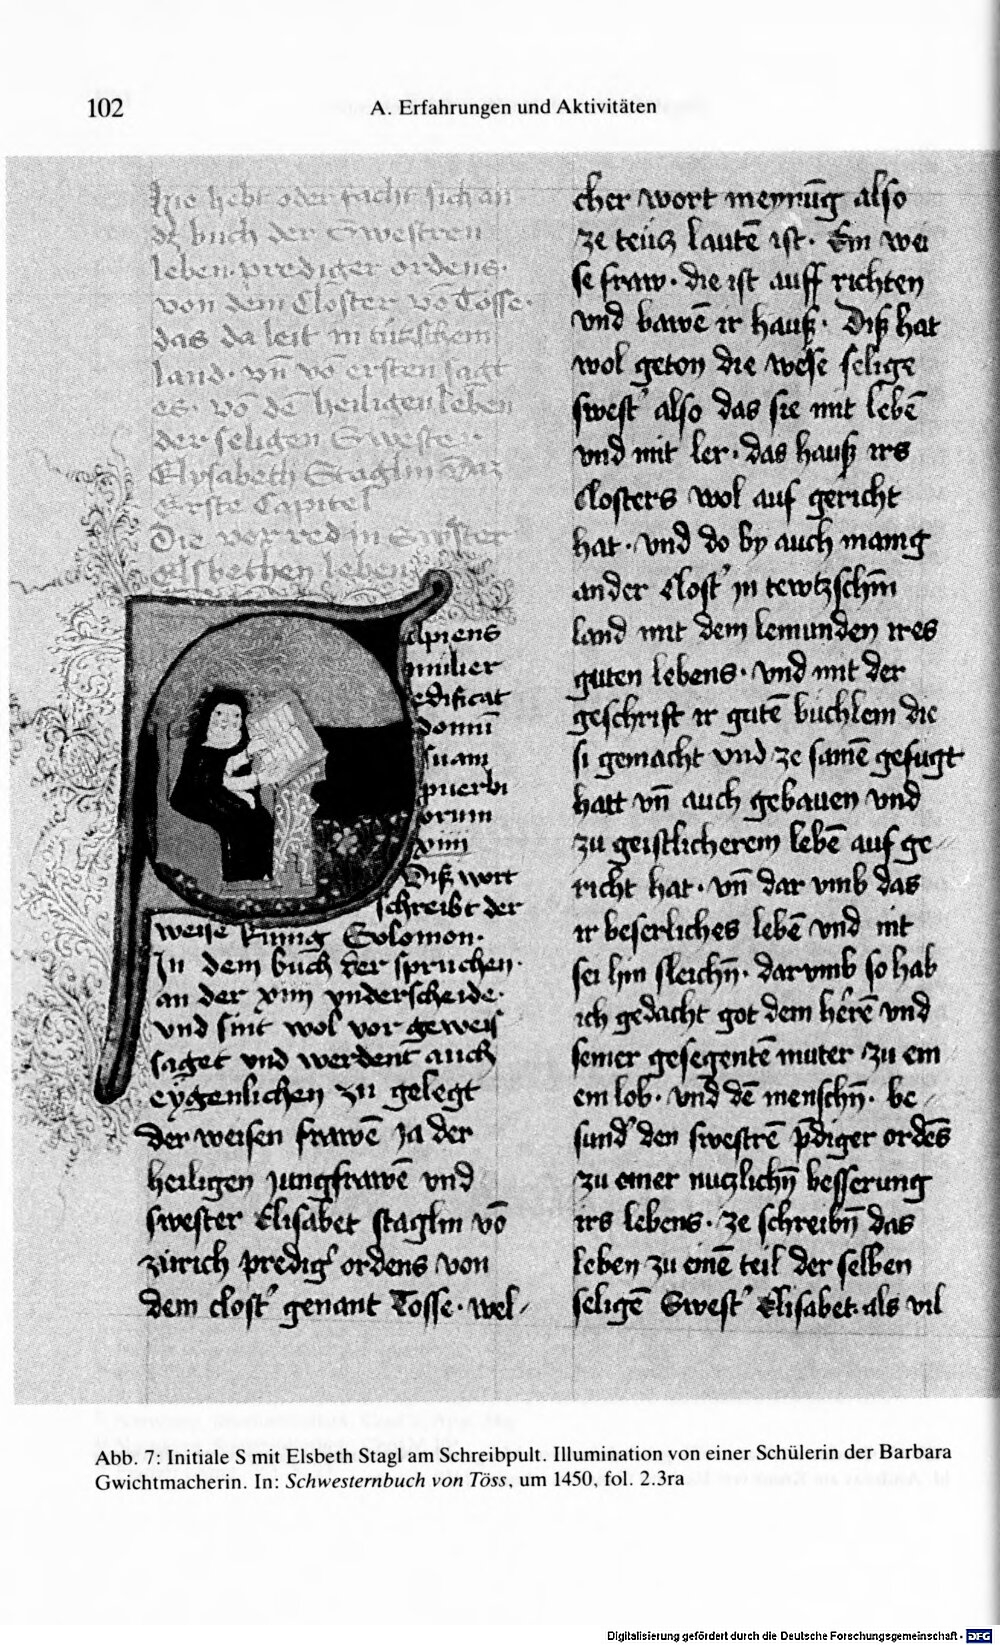 102
A. Erfahrungen und Aktivitäten
Hie hebt oder facht sich an
dz buch der Swestren
leben prediger ordens·
von dem Closter vō Tösse·
das da leit in
land· vn̄ vō ersten sagt
es· vō dē heiligen lebēn
der seligen Swester
Elysabeth Staglin Daz
Erste Capitel
Die vor red in Swester
Elsbethen leben
apiens
mulier
edificat
domū
suam
puerbi
orum
xiiii
Diß wort
schreibt der
weise kunig Solomon·
In dem buch der spruchen·
an der xiiii vnderscheide·
vnd sint wol vor geweis
saget vnd werdent auch
eygenlichen zu gelegt
der weisen frawē Ja der
heiligen jungfrawē vnd
swester Elisabet staglin vō
zürich predig' ordens von
dem clost' genant Tosse· wel-
cher wort meynūg also
ze teusch lautē ist· Ein wei
se fraw· die ist auff richten
vnd bawē ir hauß· Diß hat
wol geton die weise selige
swest' also das sie mit lebē
vnd mit ler· das hauß irs
Closters wol auf gericht
hat· vnd do by auch manig
ander clost' in tewtzschm̄
land mit dem lemunden ires
guten lebens· vnd mit der
geschrift ir gutē buchlem die
si gemacht vnd ze samē gefugt
hatt vn̄ auch gebauen vnd
zu geistlicherem lebē auf ge-
richt hat· vn̄ dar vmb das
ir beserliches lebē vnd nit
sei hin sleichn̄· darvmb so hab
ich gedacht got dem herē vnd
seiner gesegentē muter zu ein
em lob· vnd dē menschn̄· be-
sund' den swestrē p̄diger ordēs
zu einer nuczlichn̄ besserung
irs lebens· ze schreibn̄ das
leben zu einē teil der selben
seligē Swest' Elisabet· als vil
Abb. 7: Initiale S mit Elsbeth Stagl am Schreibpult. Illumination von einer Schülerin der Barbara
Gwichtmacherin. In: Schwesternbuch von Töss, um 1450, fol. 2.3ra
Digitalisierung gefördert durch die Deutsche Forschungsgemeinschaft - DFG